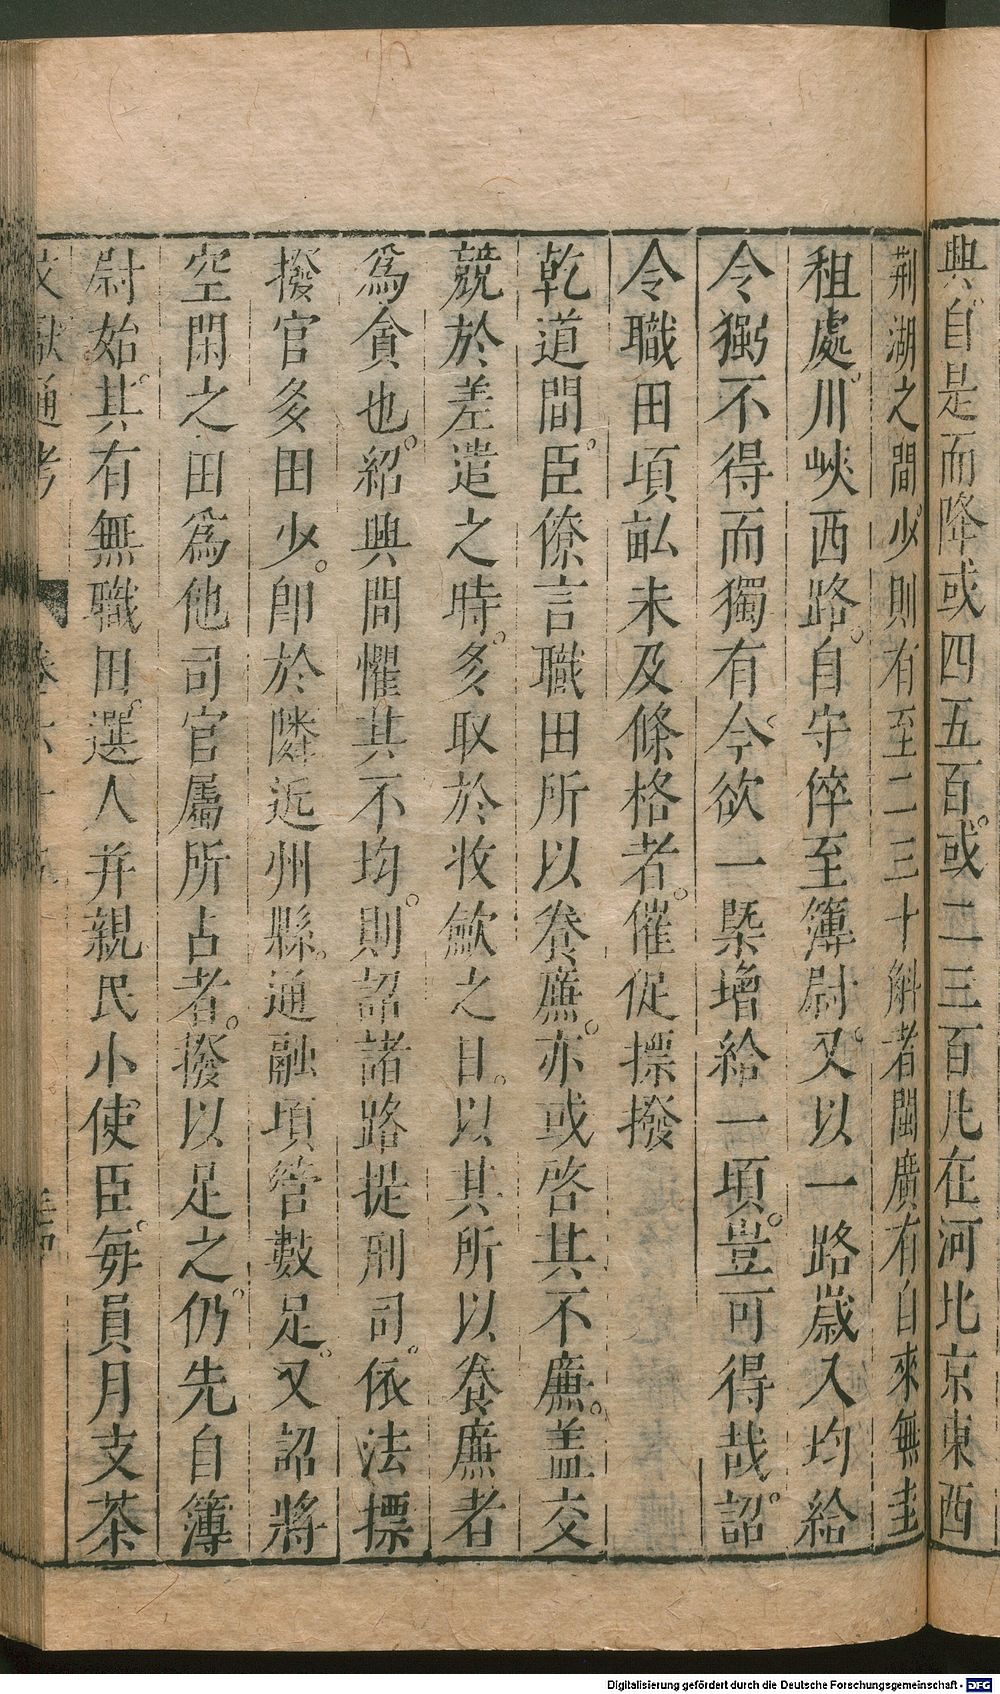 典。自是而降或四五百。或二三百凡在河北京東西
荆湖之間。少則有至二三十斛者閩廣有自來無圭
租處。川峽西路。自守倅至簿尉。又以一路歲入均給
令獨不得而獨有。今欲一槩增給一頃。豈可得哉。詔
令職田頃畆未及條格者。催促摽撥
乾道間。臣僚言職田所以養廉。亦或啓其不廉。盖交
競於差遣之時。多取於收歛之日。以其所以養廉者
爲貪也。紹興間懼其不均。則詔諸路提刑司。依法摽
撥官多田少。卽於隣近州縣。通融項管數足。又詔將
空閑之田爲他司官屬所占者。撥以足之。仍先自簿
尉始。其有無職田。選人并親民小使臣。每員月支茶
文獻通考
Digitalisierung gefördert durch die Deutsche Forschungsgemeinschaft - DFG